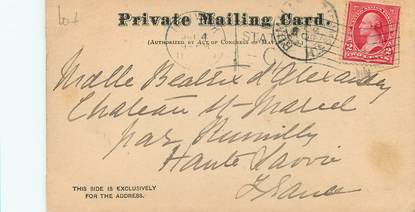 Lot
Private Mailing Card.
(AUTHORIZED BY ACT OF CONGRESS OF MAY
STA
4
2 2
Mdlle Beatrix d'Alexandry
Chateau St-Marcel
par Rumilly
Haute Savoie
France
THIS SIDE IS EXCLUSIVELY
FOR THE ADDRESS.